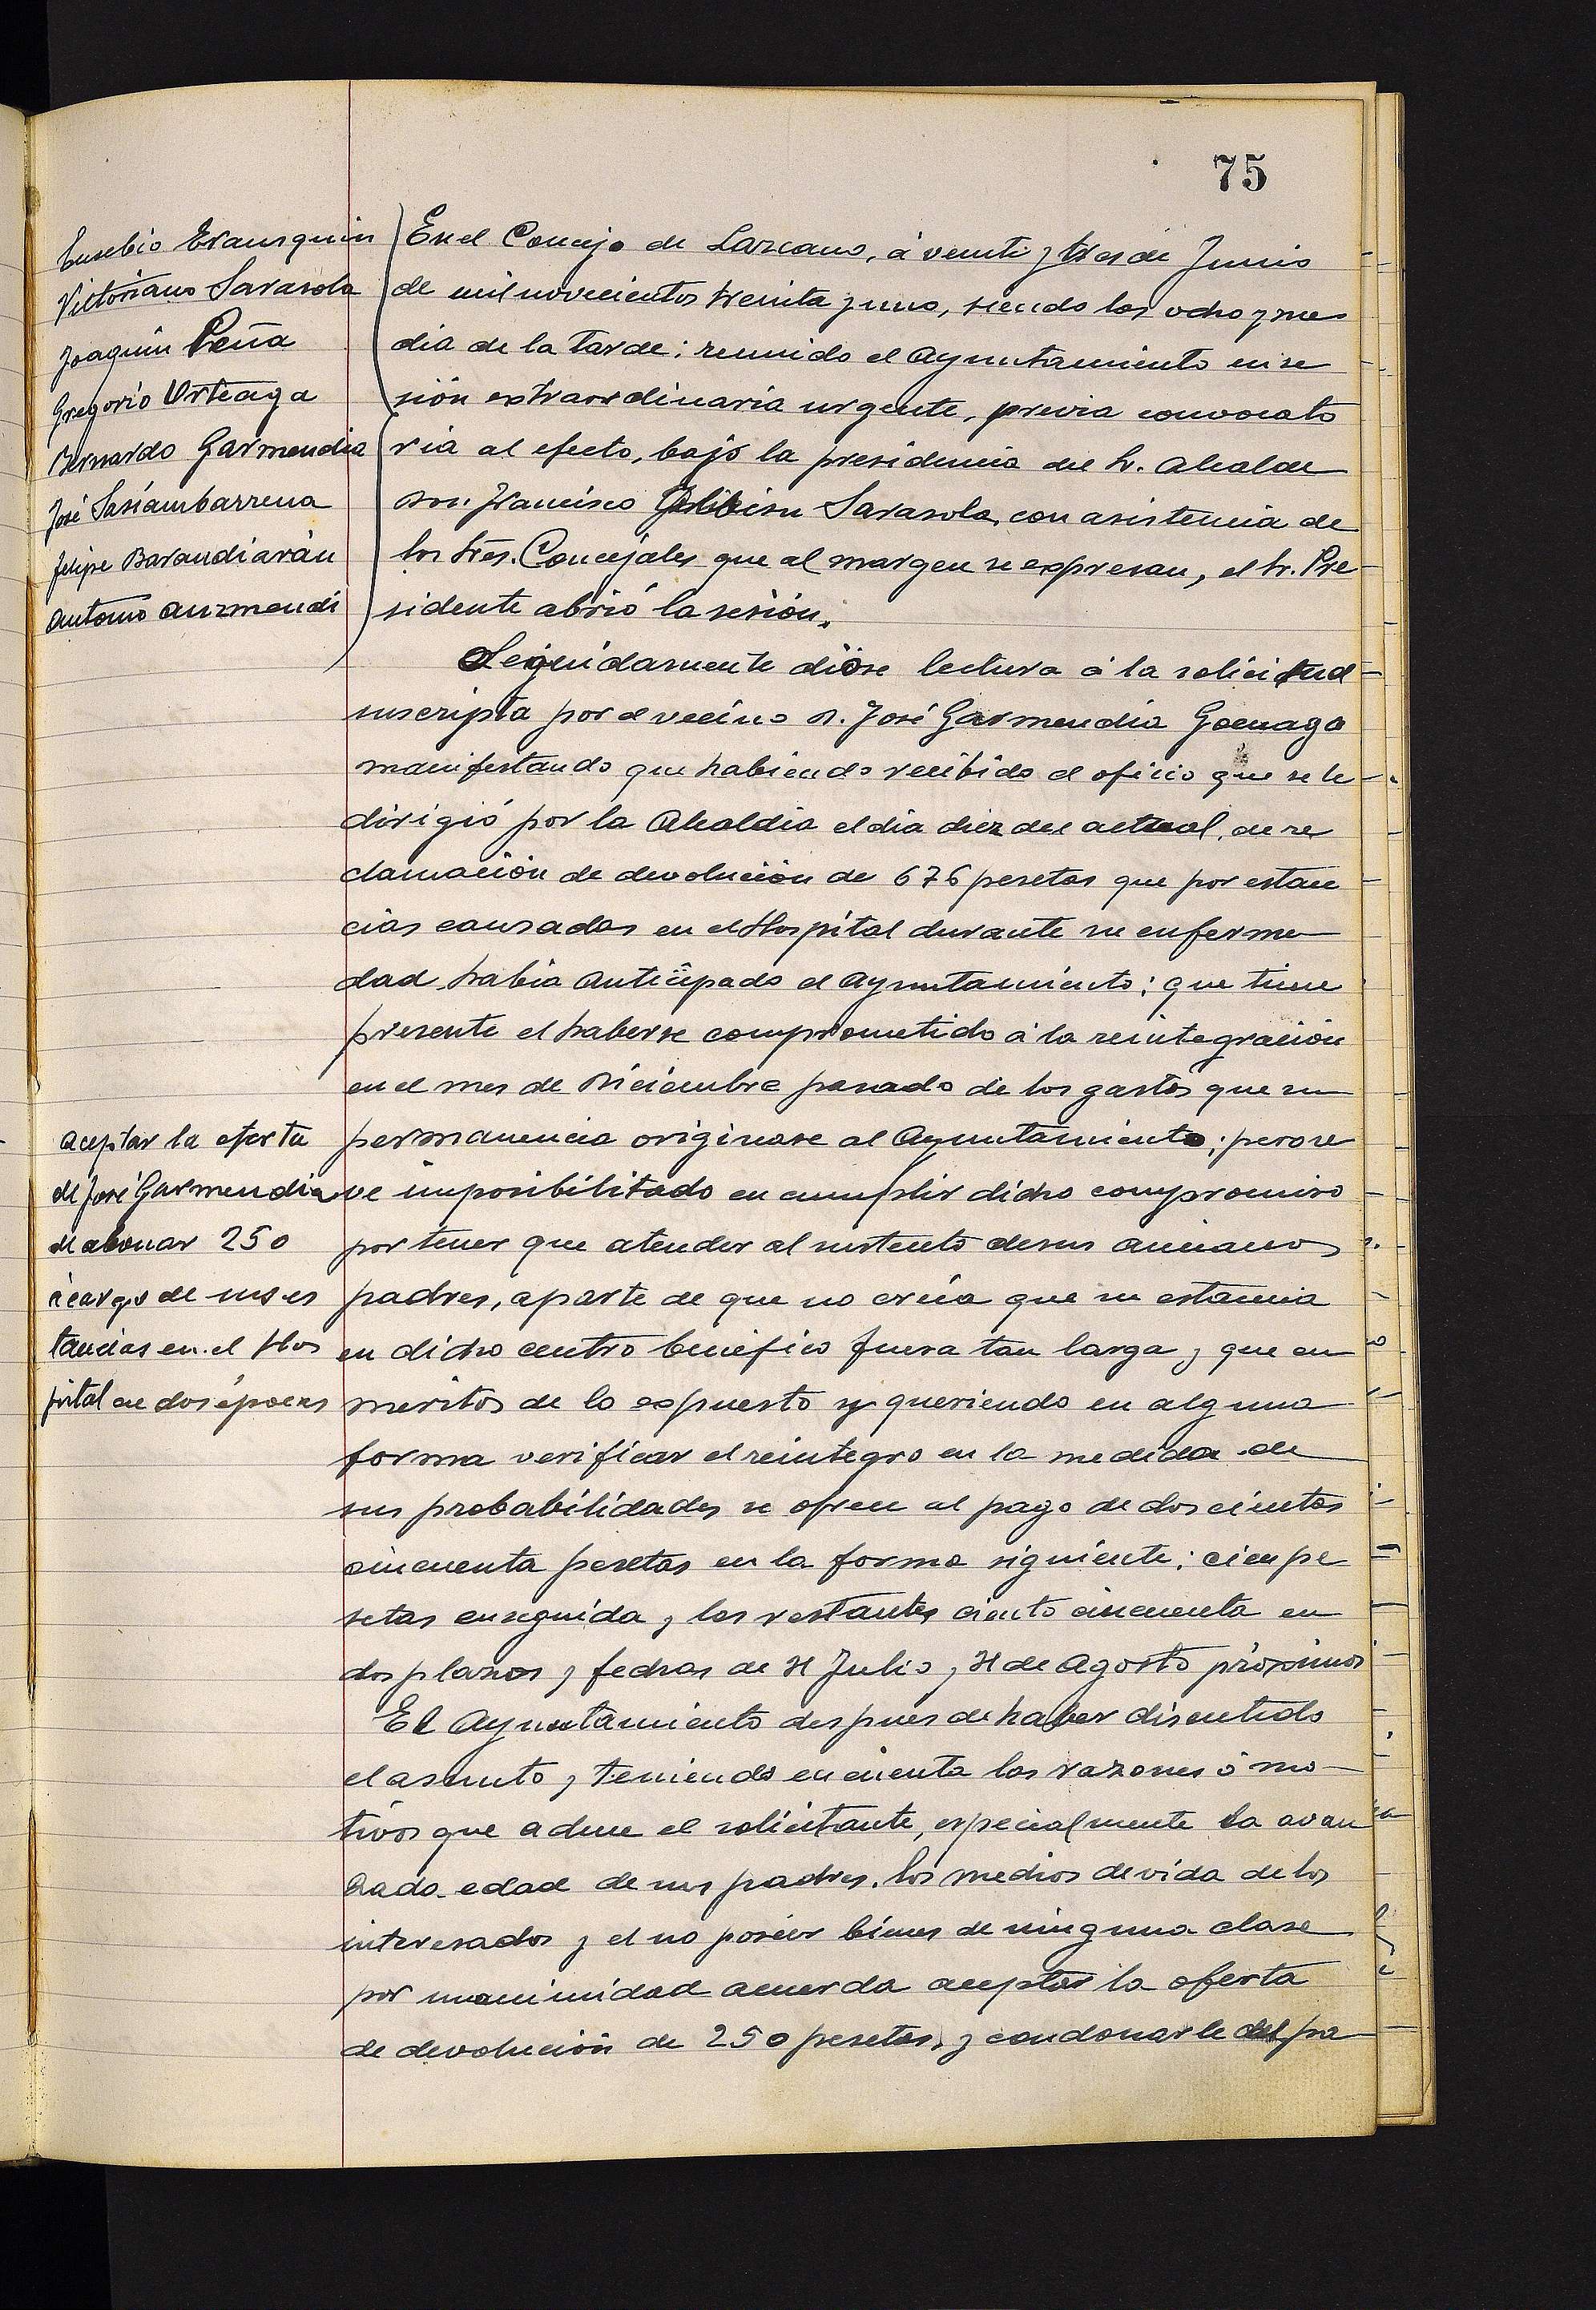 75
Eusebio Erausquin
Victoriano Sarasola
Joaquin Peña
Gregorio Urteaga
Bernardo Garmendia
José Sasiambarrena
Felipe Barandiarán
Antonio Auzmendi
En el Concejo de Lazcano, á veinti y tres de Junio
de mil novecientos treinta y uno, siendo las ocho y me
dia de la tarde; reunido el Ayuntamiento en se
sión extraordinaria urgente, previa convocato
ria al efecto, bajo la presidencia del Sr. Alcalde
Don Francisco Sarasola, con asistencia de
los Sres. Concejales que al margen se expresan, el Sr. Pre
sidente abrió la sesión.
Seguidamente dióse lectura á la solicitud
suscripta por el vecino D. José Garmendia Goenaga
manifestando que habiendo recibido el oficio que se le
dirigió por la Alcaldia el dia diez del actual, de re
clamación de devolución de 676 pesetas que por estan
cias causadas en el Hospital durante su enferme
dad, habia anticipado el Ayuntamiento; que tiene
presente el haberse comprometido á la reintegración
en el mes de Diciembre pasado de los gastos que su
permanencia originase al Ayuntamiento; pero se
ve imposibilitado en cumplir dicho compromiso
por tener que atender al sustento de sus ancianos
padres, aparte de que no creía que su estancia
en dicho centro benéfico fuera tan larga y que en
meritos de lo expuesto y queriendo en alguna
forma verificar el reintegro en la medida de
sus probabilidades se ofrece al pago de doscientas
cincuenta pesetas en la forma siguiente: cien pe
setas enseguida y las restantes ciento cincuenta en
dos plazos y fechas de 31 Julio y 31 de Agosto próximos
El Ayuntamiento despues de haber discutido
el asunto y teniendo en cuenta las razones ó mo-
tivos que aduce el solicitante, especialmente la avan
zada edad de sus padres, los medios de vida de los
interesados y el no poseer bienes de ninguna clase
por unanimidad acuerda aceptar la oferta
de devolución de 250 pesetas, y condonarle del pa
Aceptar la oferta
de José Garmendia
de abonar 250
á cargo de sus es
tancias en el Hos
pital en dos épocas